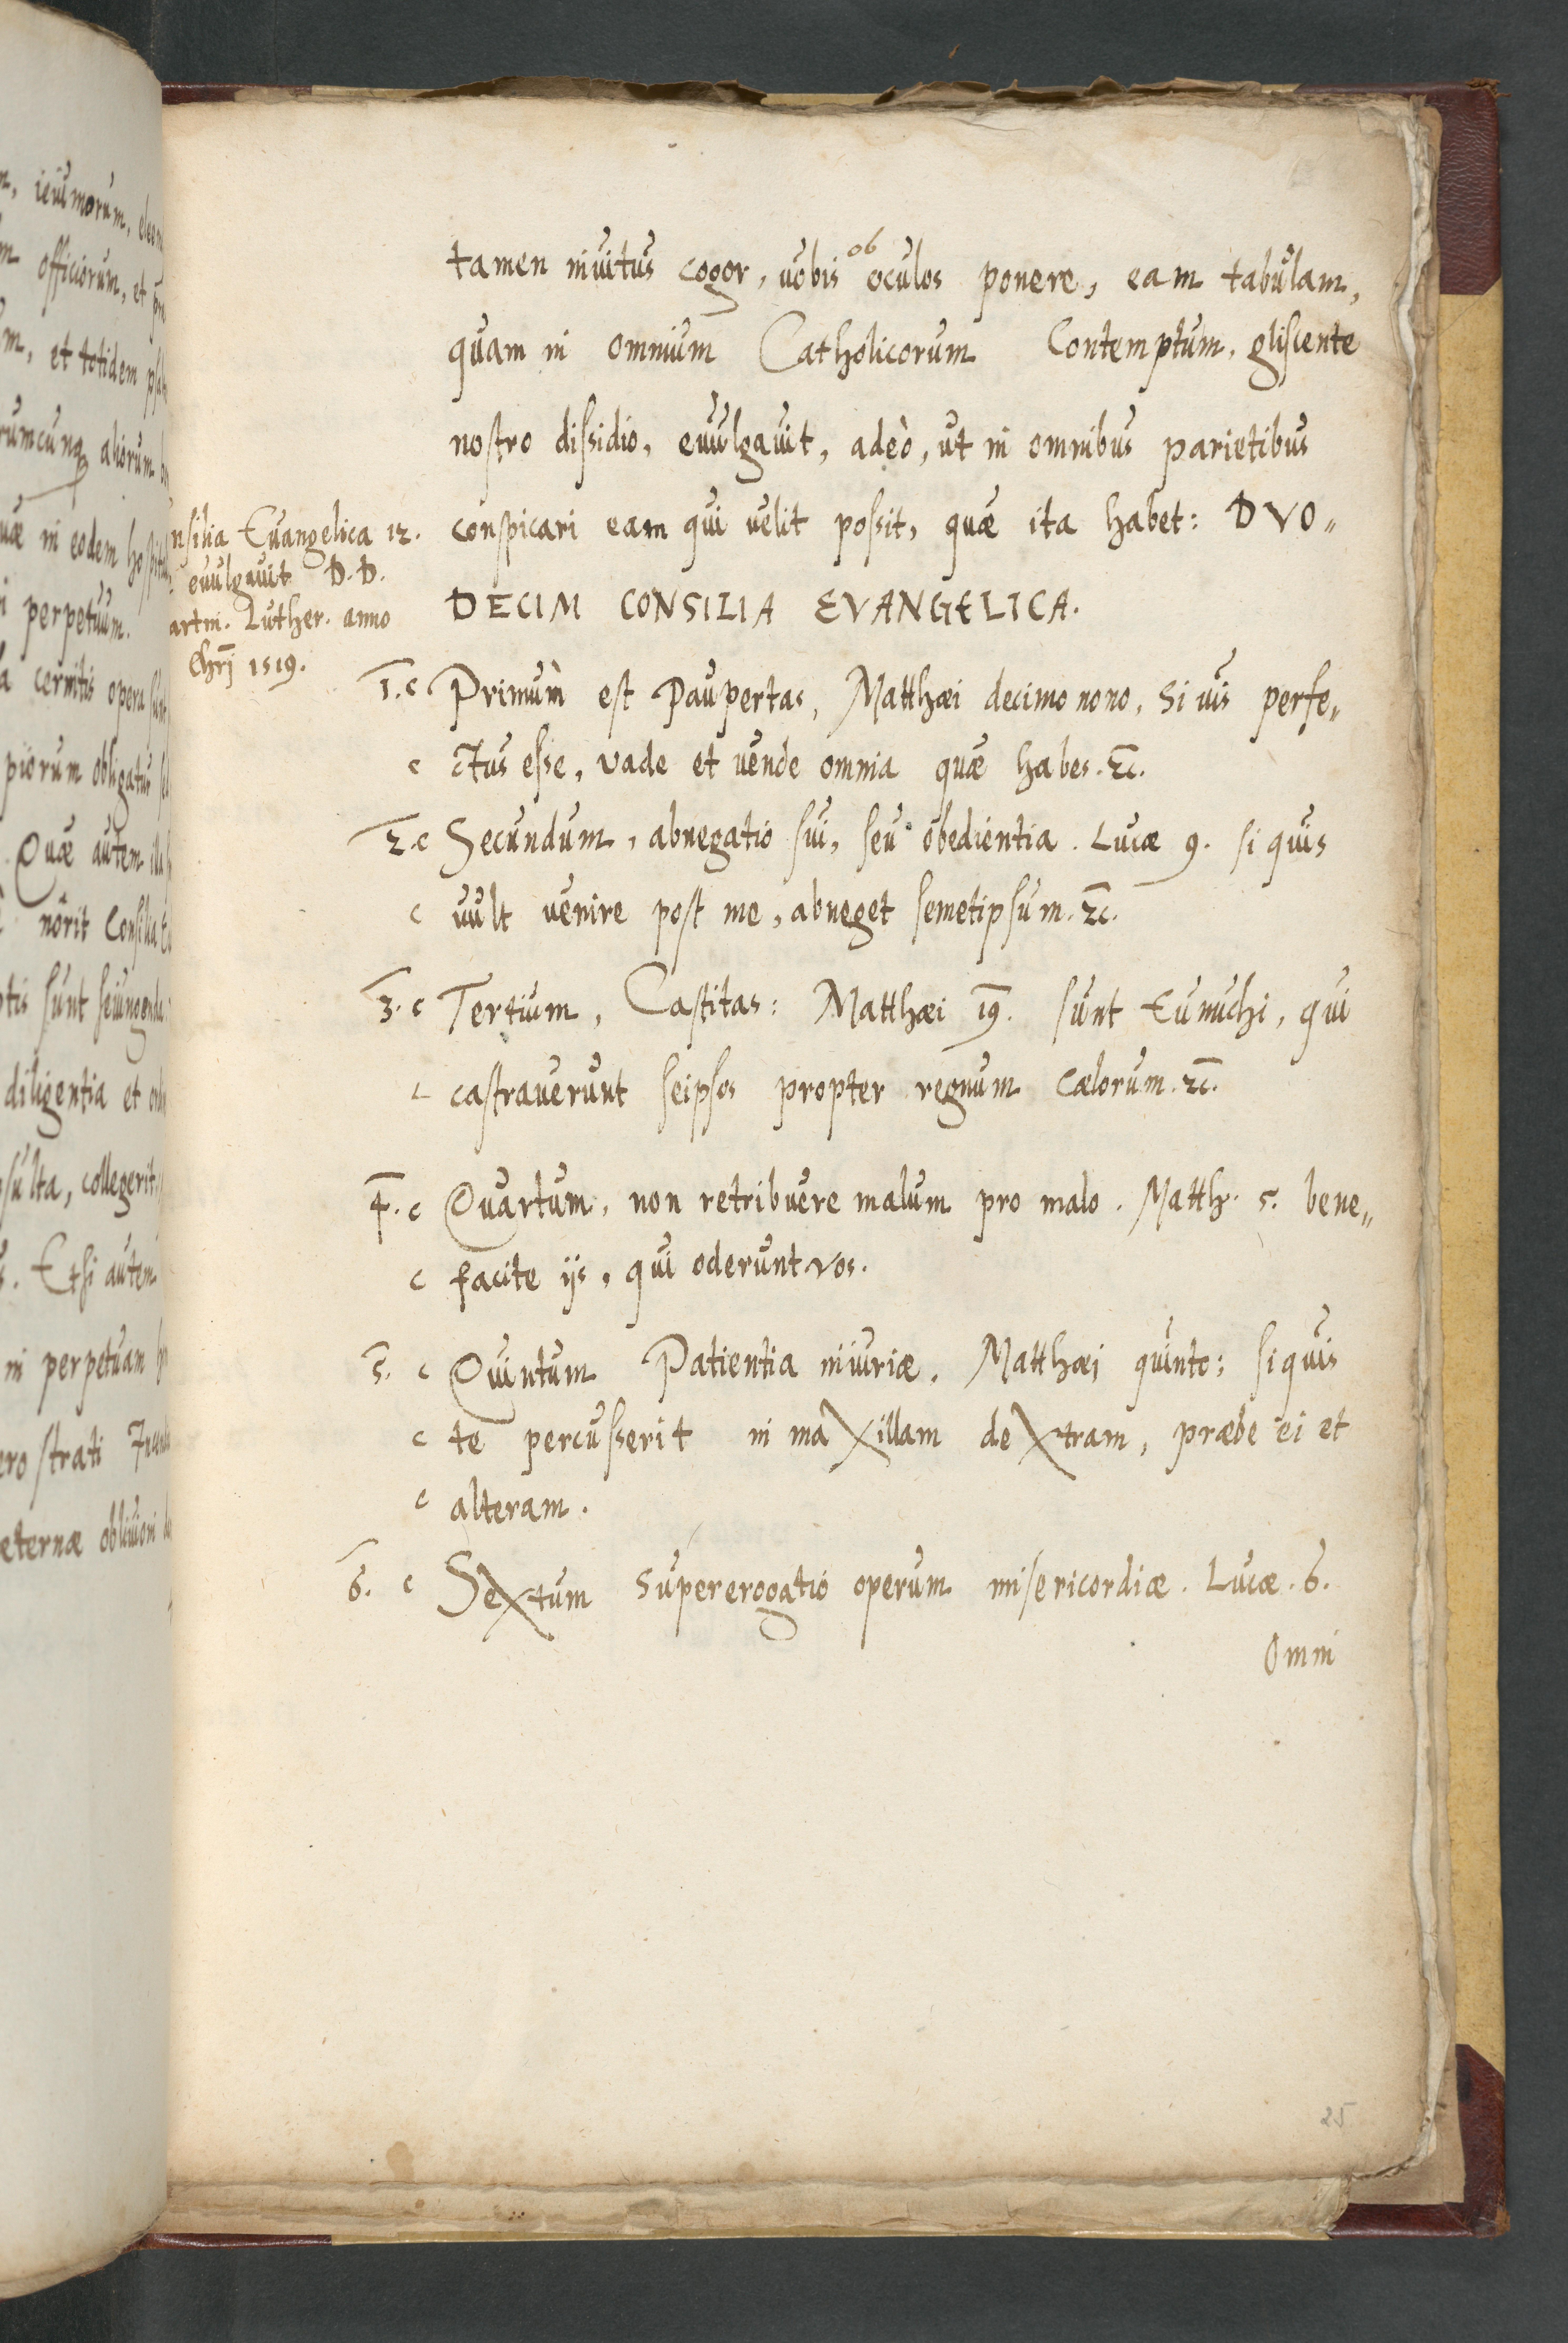 m, ieiuniorum,
m officiorum, et
m, et totidem
rumcunq aliorum
uæ in eodem
i perpetuum.
a cernitis opera
piorum obligatus
Quæ autem
nôrit Consilia
ptis sunt seiungenda
diligentia et
sulta, collegerit
s. Etsi autem
in perpetuam
ero strati
eternæ obliuioni
tamen inuitus cogor, uobis ob oculos ponere, eam tabulam,
quam in omnium Catholicorum Contemptum, gliscente
nostro dissidio, euulgauit, adeò, ut in omnibus parietibus
conspicari eam qui uelit possit, quæ ita habet: DVO„
DECIM CONSILIA EVANGELICA.
nsilia Euangelica 12.
euulgauit D. D.
artin. Luther. anno
Chrj 1519.
1. c Primum est Paupertas, Matthæi decimo nono, Si uis perfe„
c ctus esse, vade et uende omnia quæ habes. &c.
2. c Secundum, abnegatio sui, seu obedientia. Lucæ 9. si quis
c uult uenire post me, abneget semetipsum. &c.
3. c Tertium, Castitas: Matthæi 19. sunt Eunuchi, qui
c castrauerunt seipsos propter regnum Cælorum. &c.
4. c Quartum, non retribuere malum pro malo. Matth. 5. bene„
c facite ijs, qui oderunt vos.
5. c Quintum Patientia iniuriæ, Matthæi quinto: si quis
c te percusserit in maxillam dextram, præbe ei et
c alteram.
6. c Sextum Supererogatio operum misericordiæ. Lucæ. 6.
Omni
25